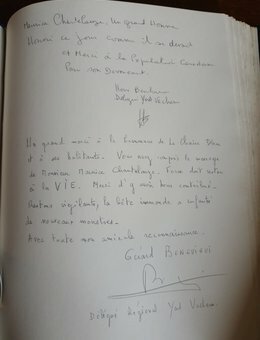 Maurice Chantelauze, Un grand Homme
Honoré ce jour comme il se devait
et Merci à la Population
Pour son Dévouement.
Délégué Yad Vachem
Un grand merci à la Commune de la Chaise Dieu
et à ses habitants. Vous avez compris le message
de Monsieur Maurice Chantelauze. Force doit rester
à la VIE. Merci d'y avoir tous contribué.
vigilants, la bête immonde a enfanté
de nouveaux monstres.
Avec toute mon amicale reconnaissance.
Gérard BENGUIGUI
Délégué Régional Yad Vachem